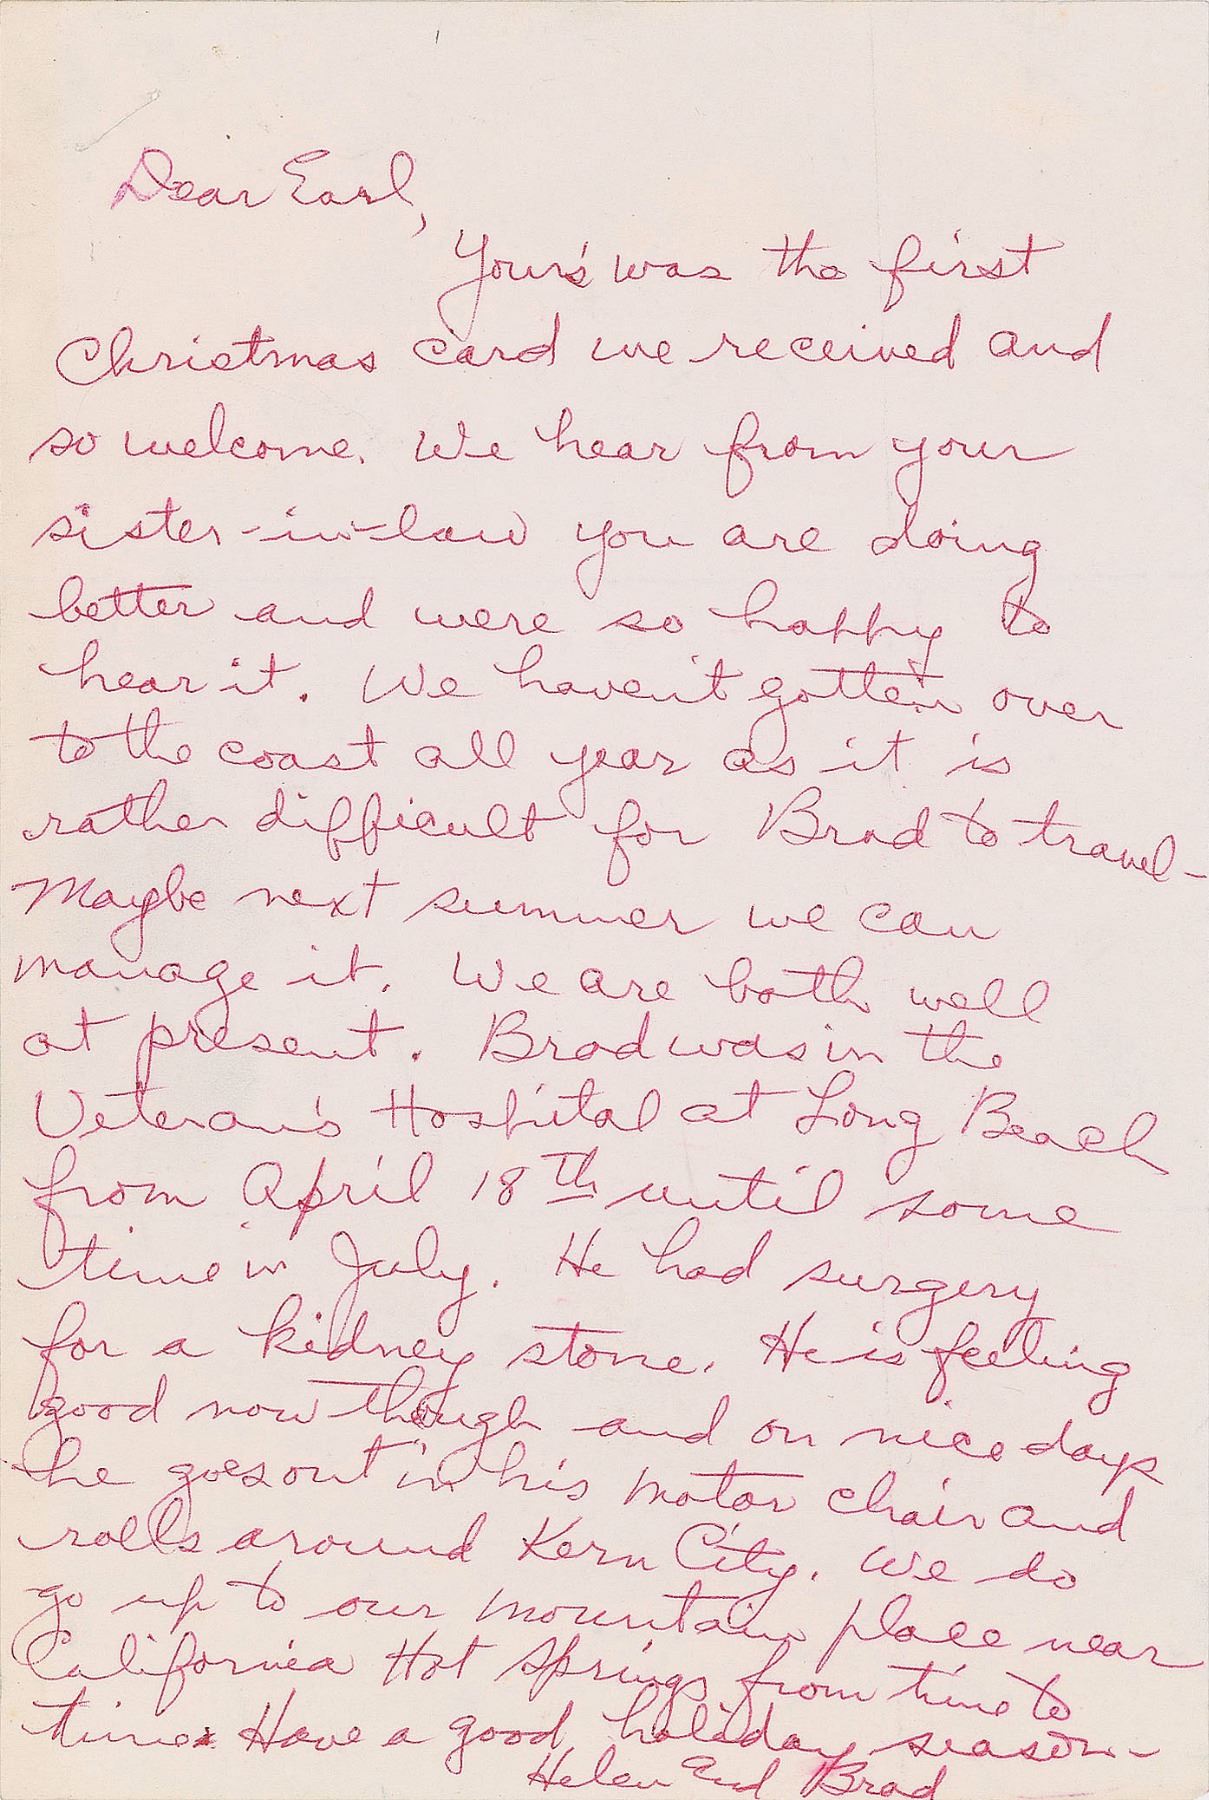 Dear Earl,
Your's was the first
Christmas card we received and
so welcome. We hear from your
sister-in-law you are doing
better and were so happy to
hear it. We haven't gotten over
to the coast all year as it is
rather difficult for Brad to travel-
Maybe next summer we can
manage it. We are both well
at present. Brad was in the
Veteran's Hospital at Long Beach
from April 18th until some
time in July. He had surgery
for a kidney stone. He is feeling
good now though and on nice days
he goes out in his motor chair and
rolls around Kern City. We do
go up to our mountain place near
California Hot Springs from time to
time. Have a good holiday season-
Helen and Brad